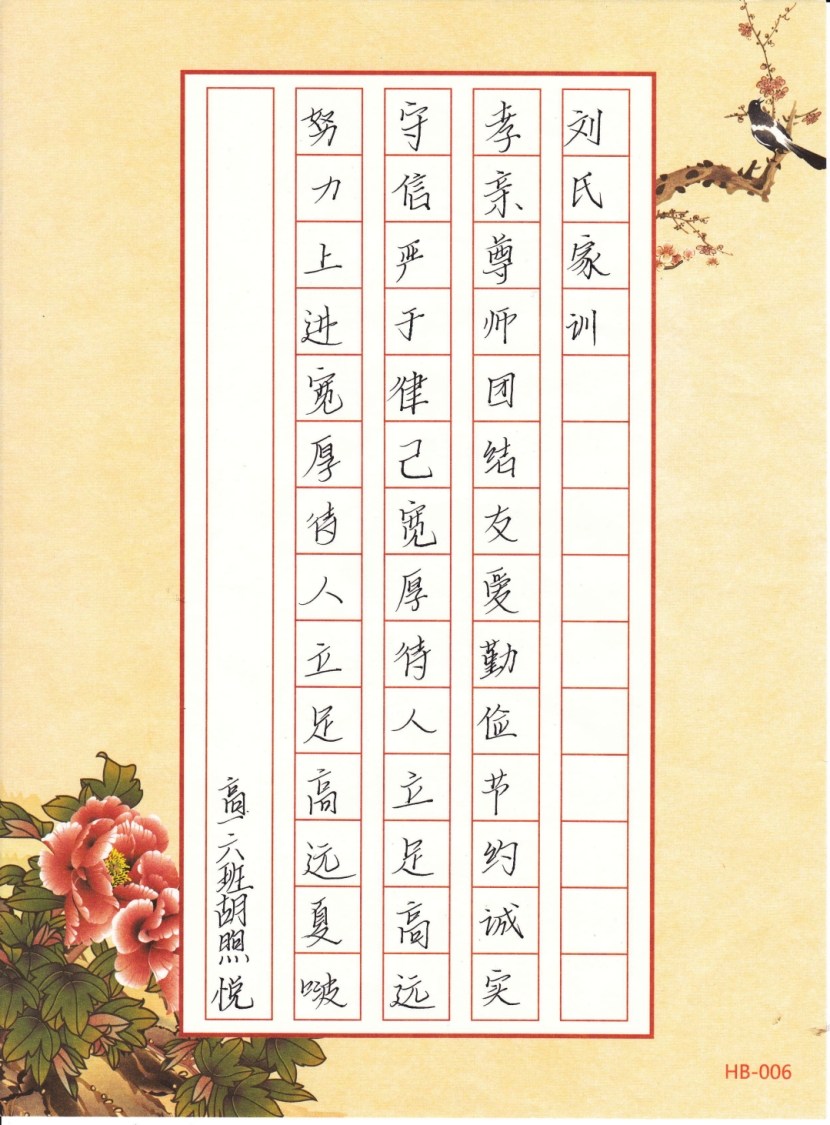 刘氏家训
孝亲尊师团结友爱勤俭节约诚实
守信严于律己宽厚待人立足高远
努力上进宽厚待人立足高远夏啵
高一六班胡煦悦
HB-006